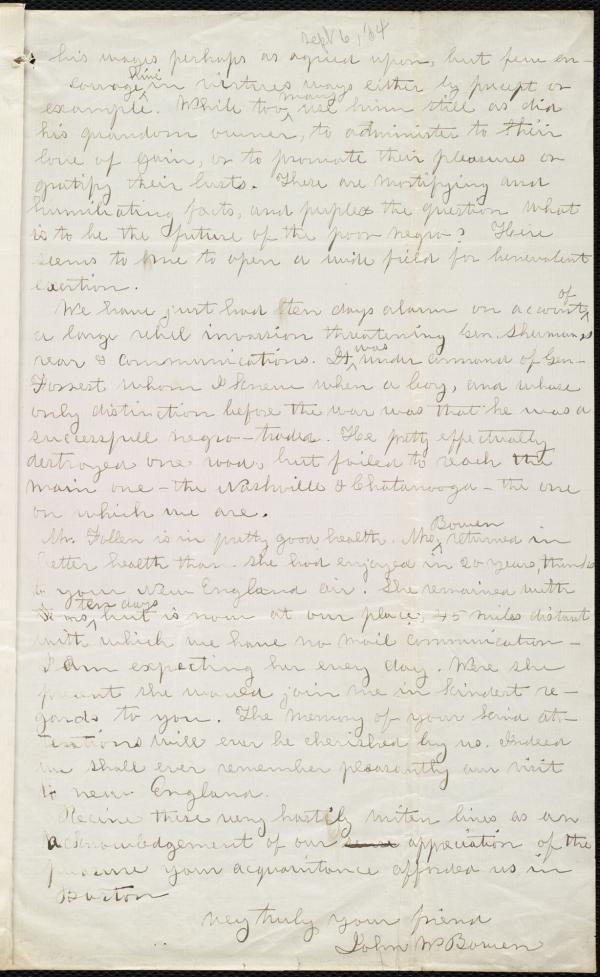 Sept 6, '64
his wages perhaps as agreed upon, but few en-
courage him in virtues ways either by precept or
example. While too many use him still as did
his quandom owner, to administer to their
love of gain, or to promote their pleasures or
gratify their lusts. These are mortifying and
humiliating facts, and perplex the question what
is to be the future of the poor negro? Here
seems to me to open a wide field for benevolent
exertion.
We have just had ten days alarm on account of
a large rebel invasion threatening Gen. Sherman,s
rear & communications. It was under command of Gen-
Forrest whom I knew when a boy, and whose
only distinction before the war was that he was a
successfull negro-trader. He pretty effectually
destroyed one road, but failed to reach the
main one - the Nashville & Chatanooga - the one
on which we are.
Mr. Follen is in pretty good health. Mrs. Bowen returned in
better health than she had enjoyed in 20 years, thanks
to your New England air. She remained with
ten days, but is now at our place, 45 miles distant
with which we have no mail communication -
I am expecting her every day. Were she
present she would join me in kindest re-
gards to you. The memory of your kind at-
tentions will ever be cherished by us. Indeed
we shall ever remember pleasantly our visit
to new England.
Recive these very hastily writen lines as an
acknowledgement of our appreciation of the
pleasure your acquaintance afforded us in
Boston
very truly your friend
John W Bowen